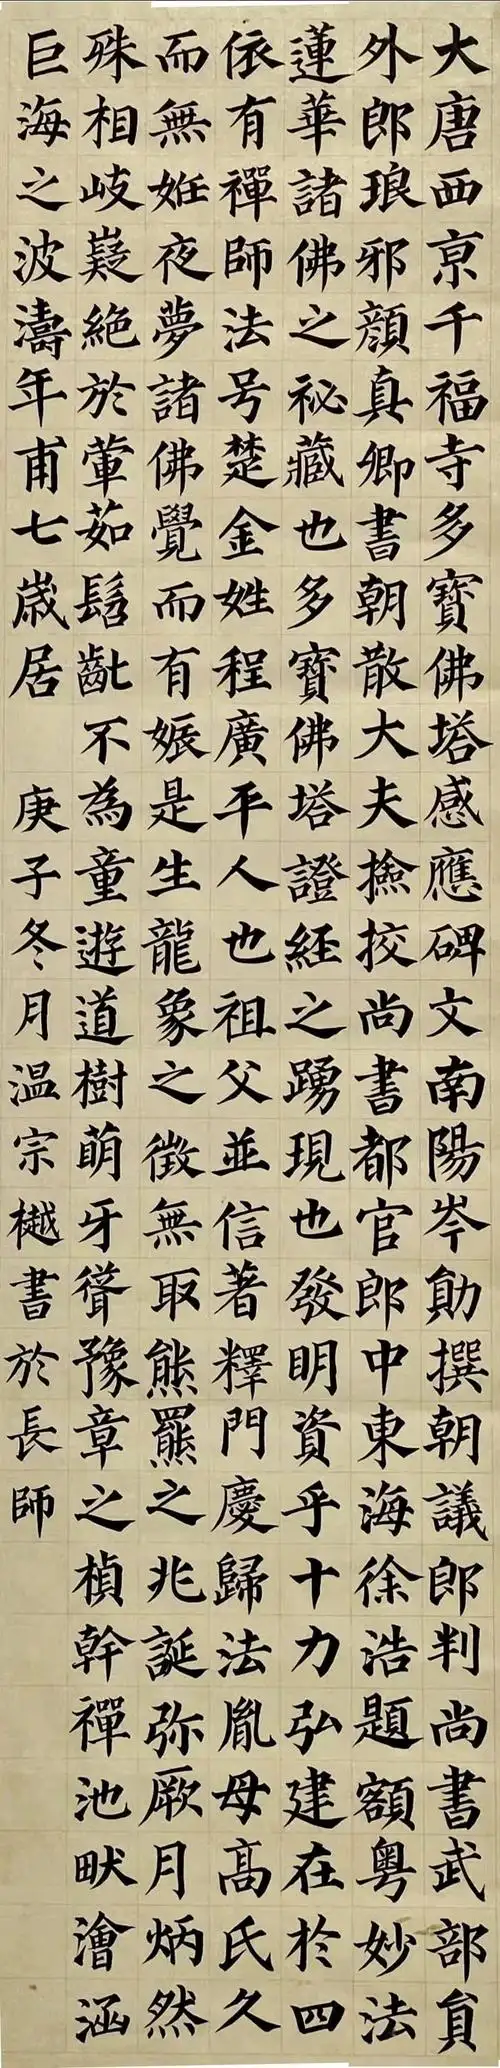 大唐西京千福寺多寶佛塔感應碑文南陽岑勛撰朝議郎判尚書武部員
外郎琅邪顔真卿書朝散大夫撿挍尚書都官郎中東海徐浩題額粤妙法
蓮華諸佛之祕藏也多寶佛塔證經之踴現也發明資乎十力弘建在於四
依有禪師法号楚金姓程廣平人也祖父並信著釋門慶歸法胤母高氏久
而無妊夜夢諸佛覺而有娠是生龍象之徵無取熊羆之兆誕弥厥月炳然
殊相岐嶷絶於葷茹髫齔不為童遊道樹萌牙聳豫章之楨幹禪池畎澮涵
巨海之波濤年甫七歲居
庚子冬月温宗樾書於長師